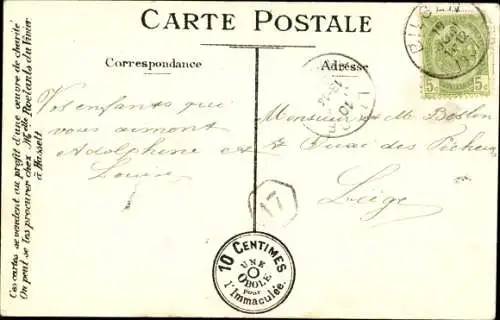 CARTE POSTALE
Correspondance
Adresse
Vos enfants qui
vous aiment
Adolphine et
Louise
Monsieur M. Boslon
Quai des Pêcheurs
Liège
Ces cartes se vendent au profit d'une œuvre de charité
On peut se les procurer chez Melle Roelants du Vivier
à Hasselt
17
10 CENTIMES
UNE
OBOLE
pour
l'Immaculée.
BILSEN
5c 5c